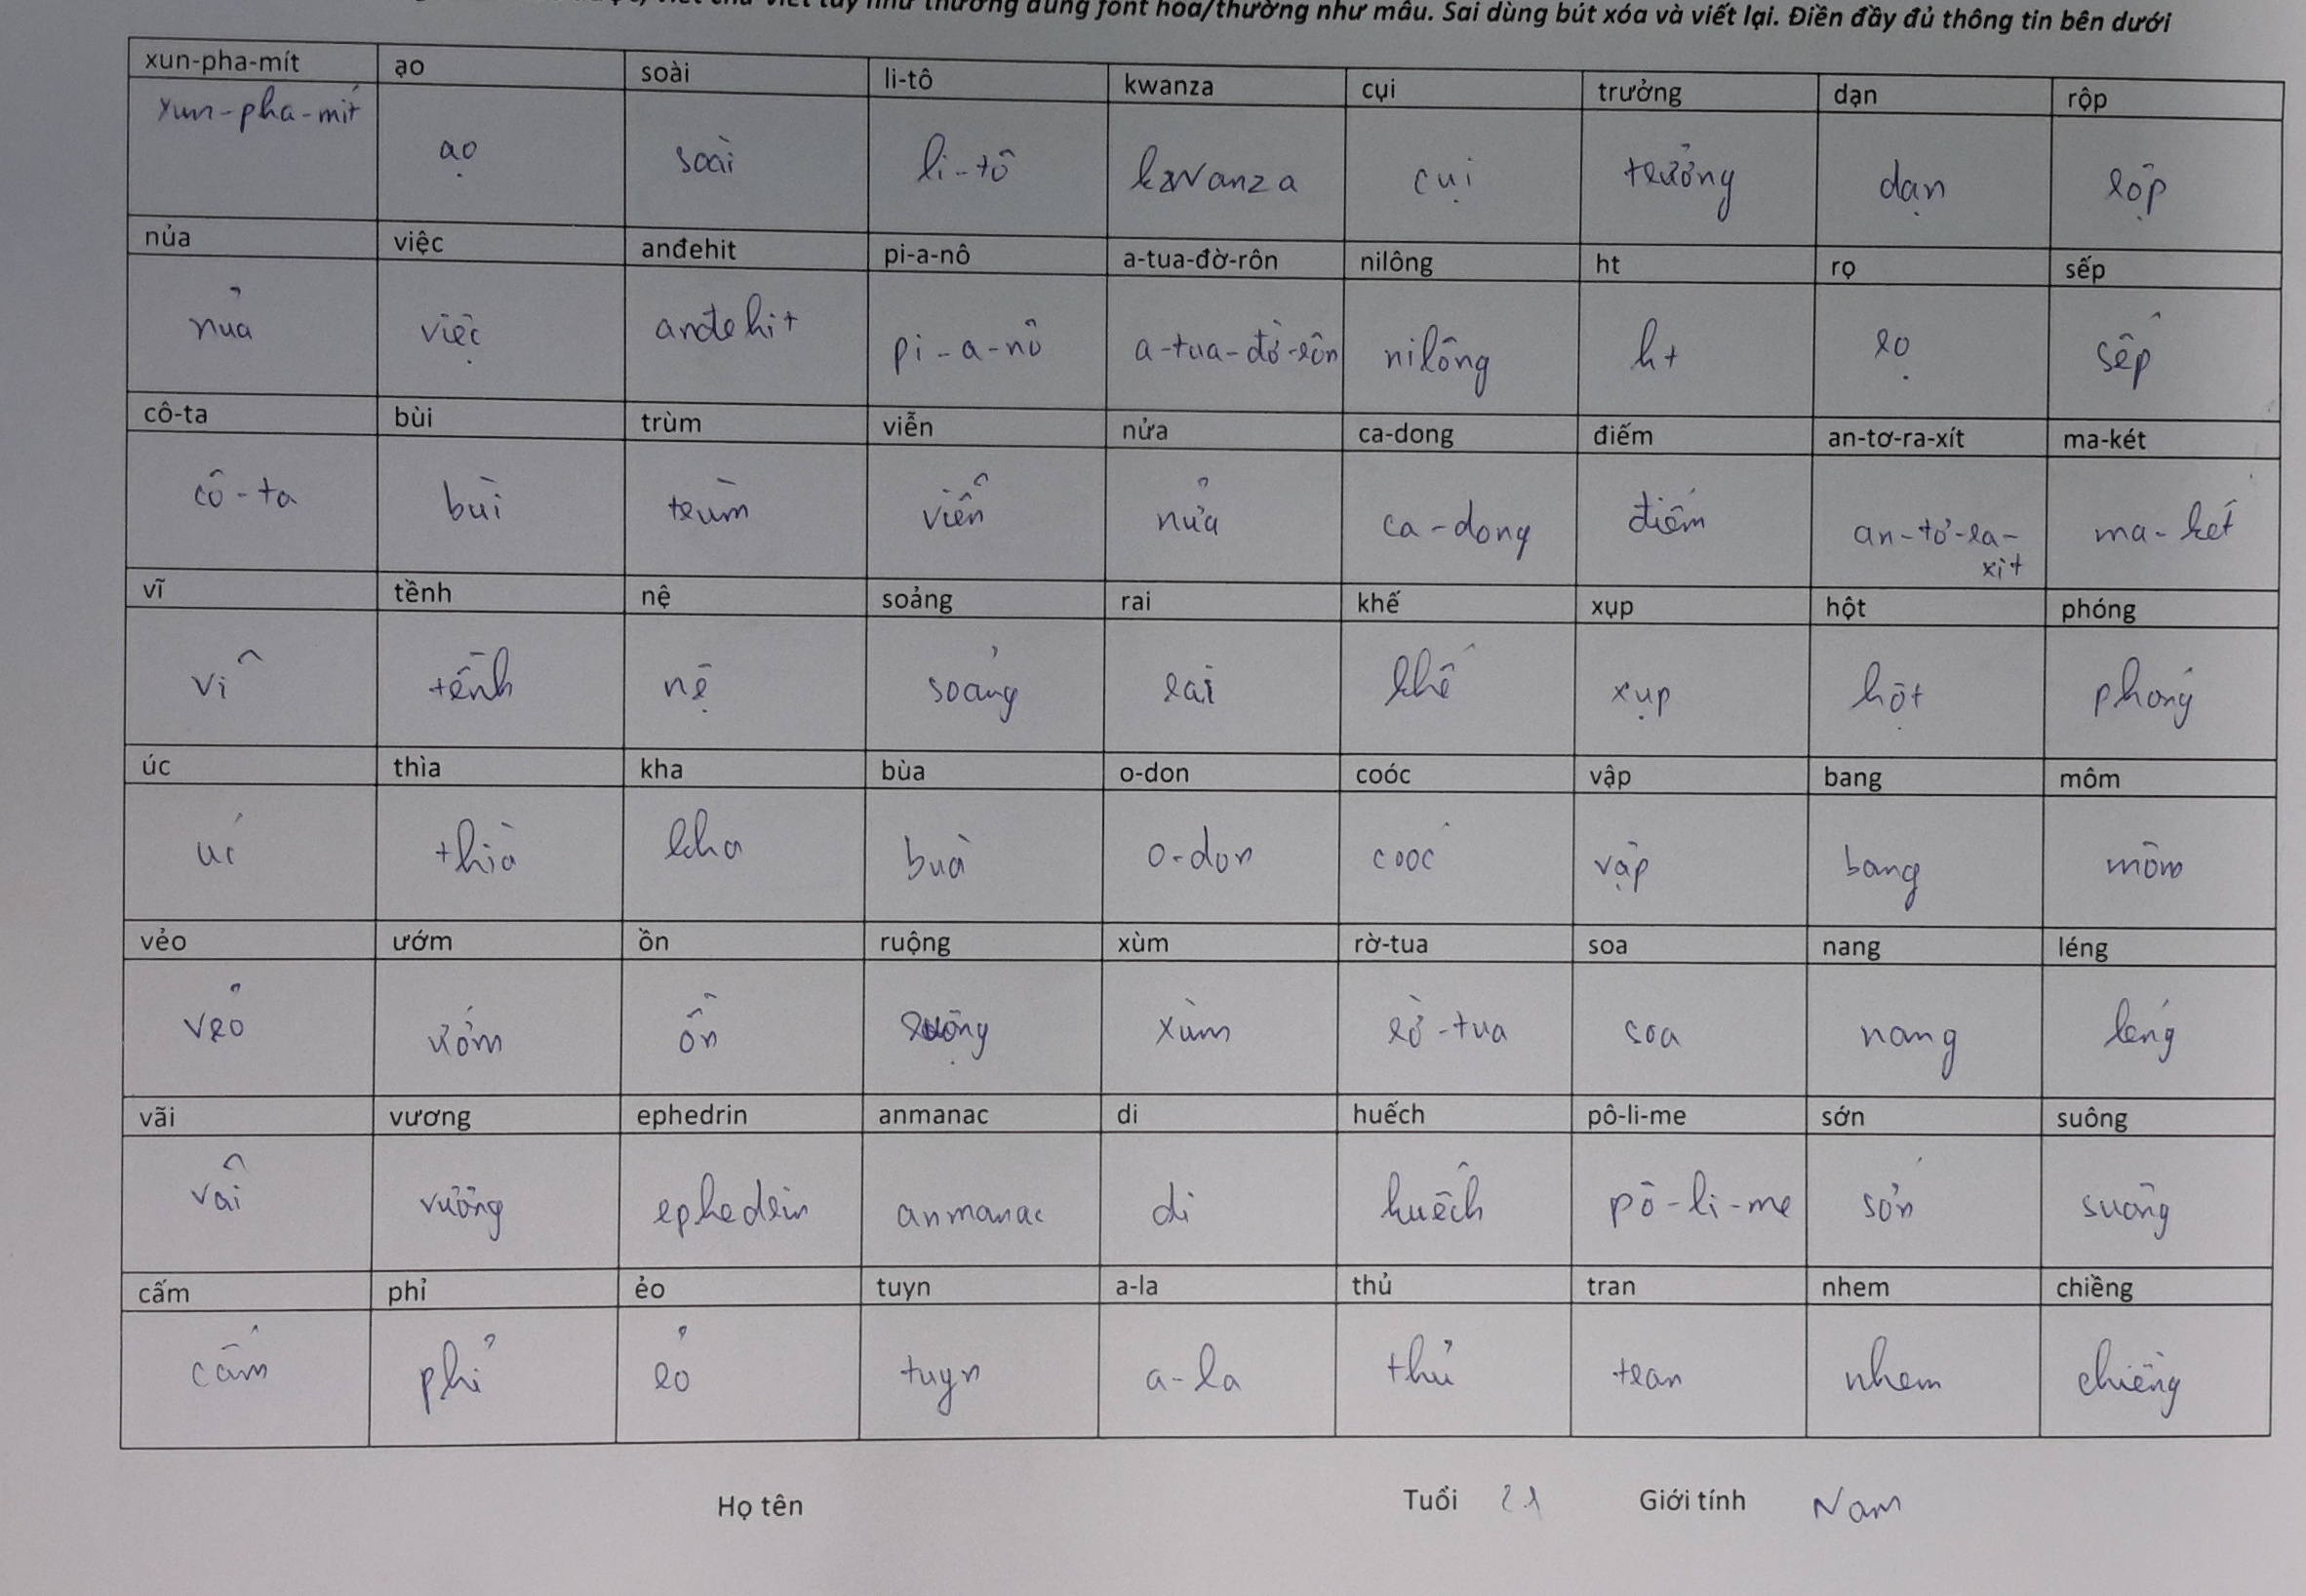 viết chữ viết tay như thường dùng font hoa/thường như mẫu. Sai dùng bút xóa và viết lại. Điền đầy đủ thông tin bên dưới
xun-pha-mít ạo soài li-tô kwanza cụi trưởng dạn rộp
xun-pha-mít ạo soài li-tô kwanza cụi trưởng dạn rộp
nủa việc anđehit pi-a-nô a-tua-đờ-rôn nilông ht rọ sếp
nủa việc anđehit pi-a-nô a-tua-đờ-rôn nilông ht rọ sếp
cô-ta bùi trùm viễn nửa ca-dong điếm an-tơ-ra-xít ma-két
cô-ta bùi trùm viễn nửa ca-dong điếm an-tơ-ra-
xít
ma-két
vĩ tềnh nệ soảng rai khế xụp hột phóng
vĩ tềnh nệ soảng rai khế xụp hột phóng
úc thìa kha bùa o-don coóc vập bang môm
úc thìa kha bùa o-don coóc vập bang môm
vẻo ướm ồn ruộng xùm rờ-tua soa nang léng
vẻo ướm ồn ruộng xùm rờ-tua soa nang léng
vãi vương ephedrin anmanac di huếch pô-li-me sớn suông
vãi vương ephedrin anmanac di huếch pô-li-me sớn suông
cấm phỉ ẻo tuyn a-la thủ tran nhem chiềng
cấm phỉ ẻo tuyn a-la thủ tran nhem chiềng
Họ tên Tuổi 21 Giới tính Nam